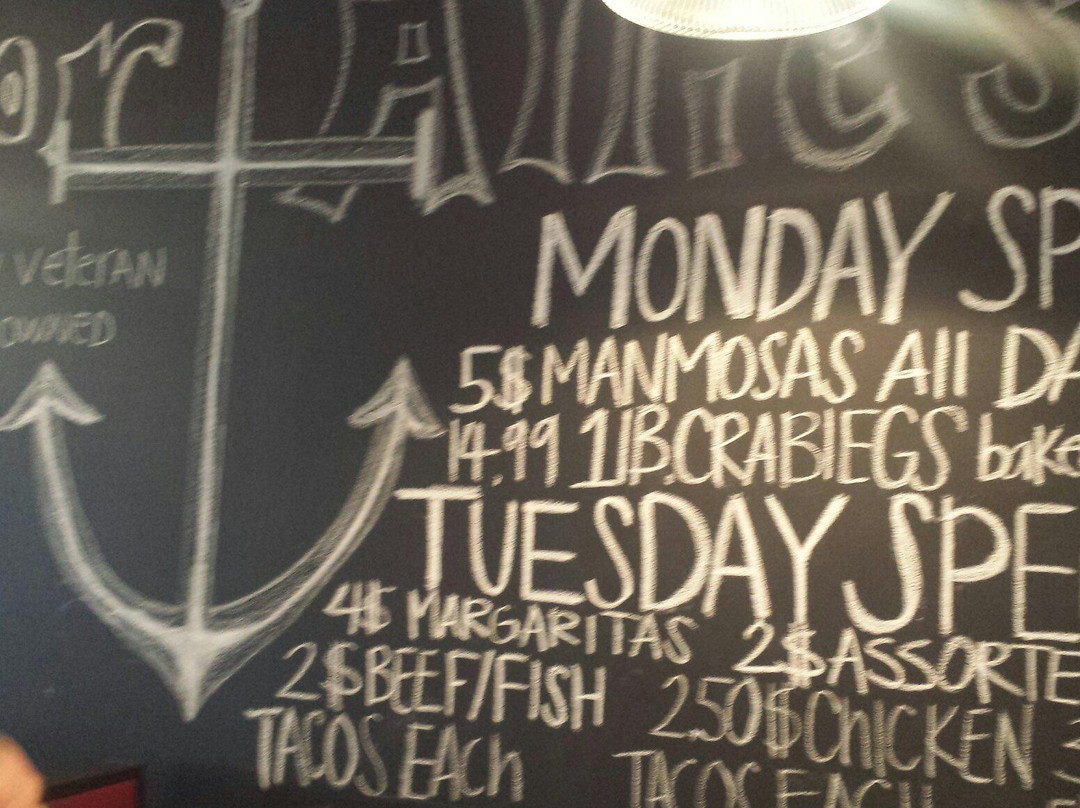 or Allies
veteran
owned
MONDAY SP
5$ MANMOSAS All DA
14.99 1lB. CRABlEGS bake
TUESDAY SPE
4$ MARGARITAS 2$ ASSORTE
2$ BEEF/FISH 2.50$ ChICKEN
TACOS EACh TACOS EACH